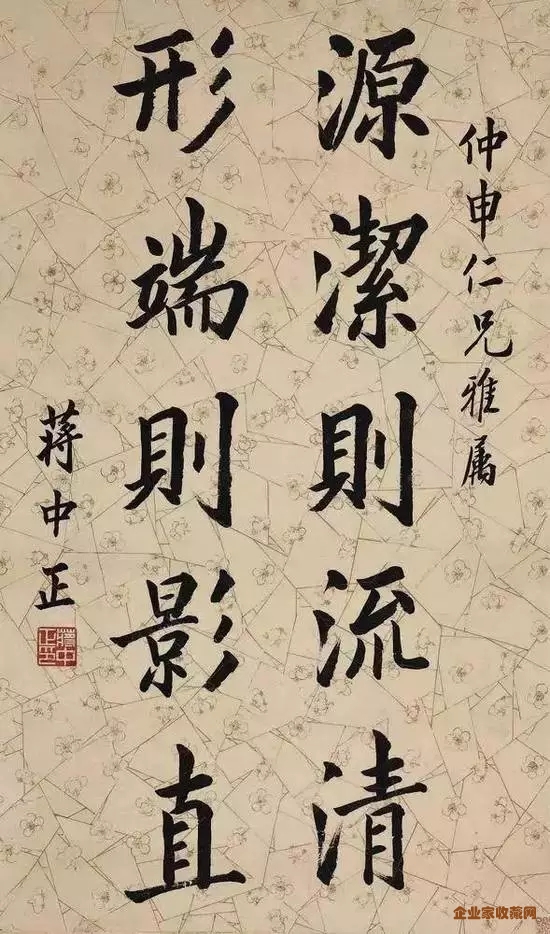 仲申仁兄雅属
源潔則流清
形端則影直
蔣中正
蔣中正印
企业家收藏网